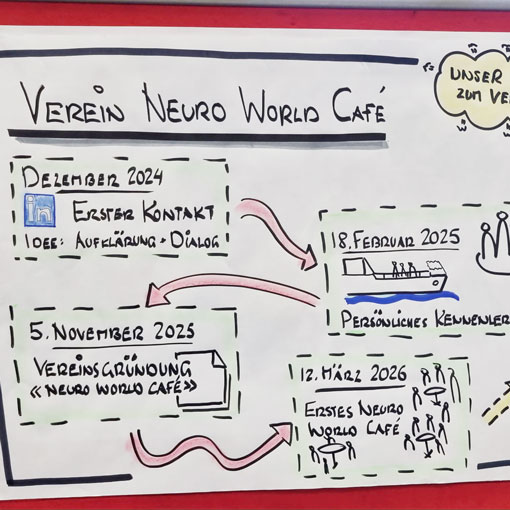 UNSER
ZUM VE
VEREIN NEURO WORLD CAFÉ
DEZEMBER 2024
in ERSTER KONTAKT
IDEE: AUFKLÄRUNG + DIALOG
18. FEBRUAR 2025
PERSÖNLICHES KENNENLER
5. NOVEMBER 2025
VEREINSGRÜNDUNG
«NEURO WORLD CAFÉ»
12. MÄRZ 2026
ERSTES NEURO
WORLD CAFÉ